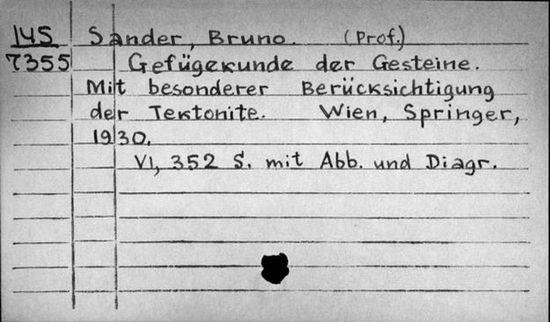 145 Sander, Bruno. (Prof.)
7355 Gefügekunde der Gesteine.
Mit besonderer Berücksichtigung
der Tektonite. Wien, Springer,
1930.
VI, 352 S. mit Abb. und Diagr.